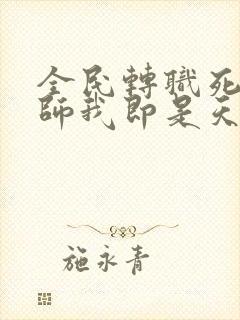 全民轉職死
師我即是天
施永青